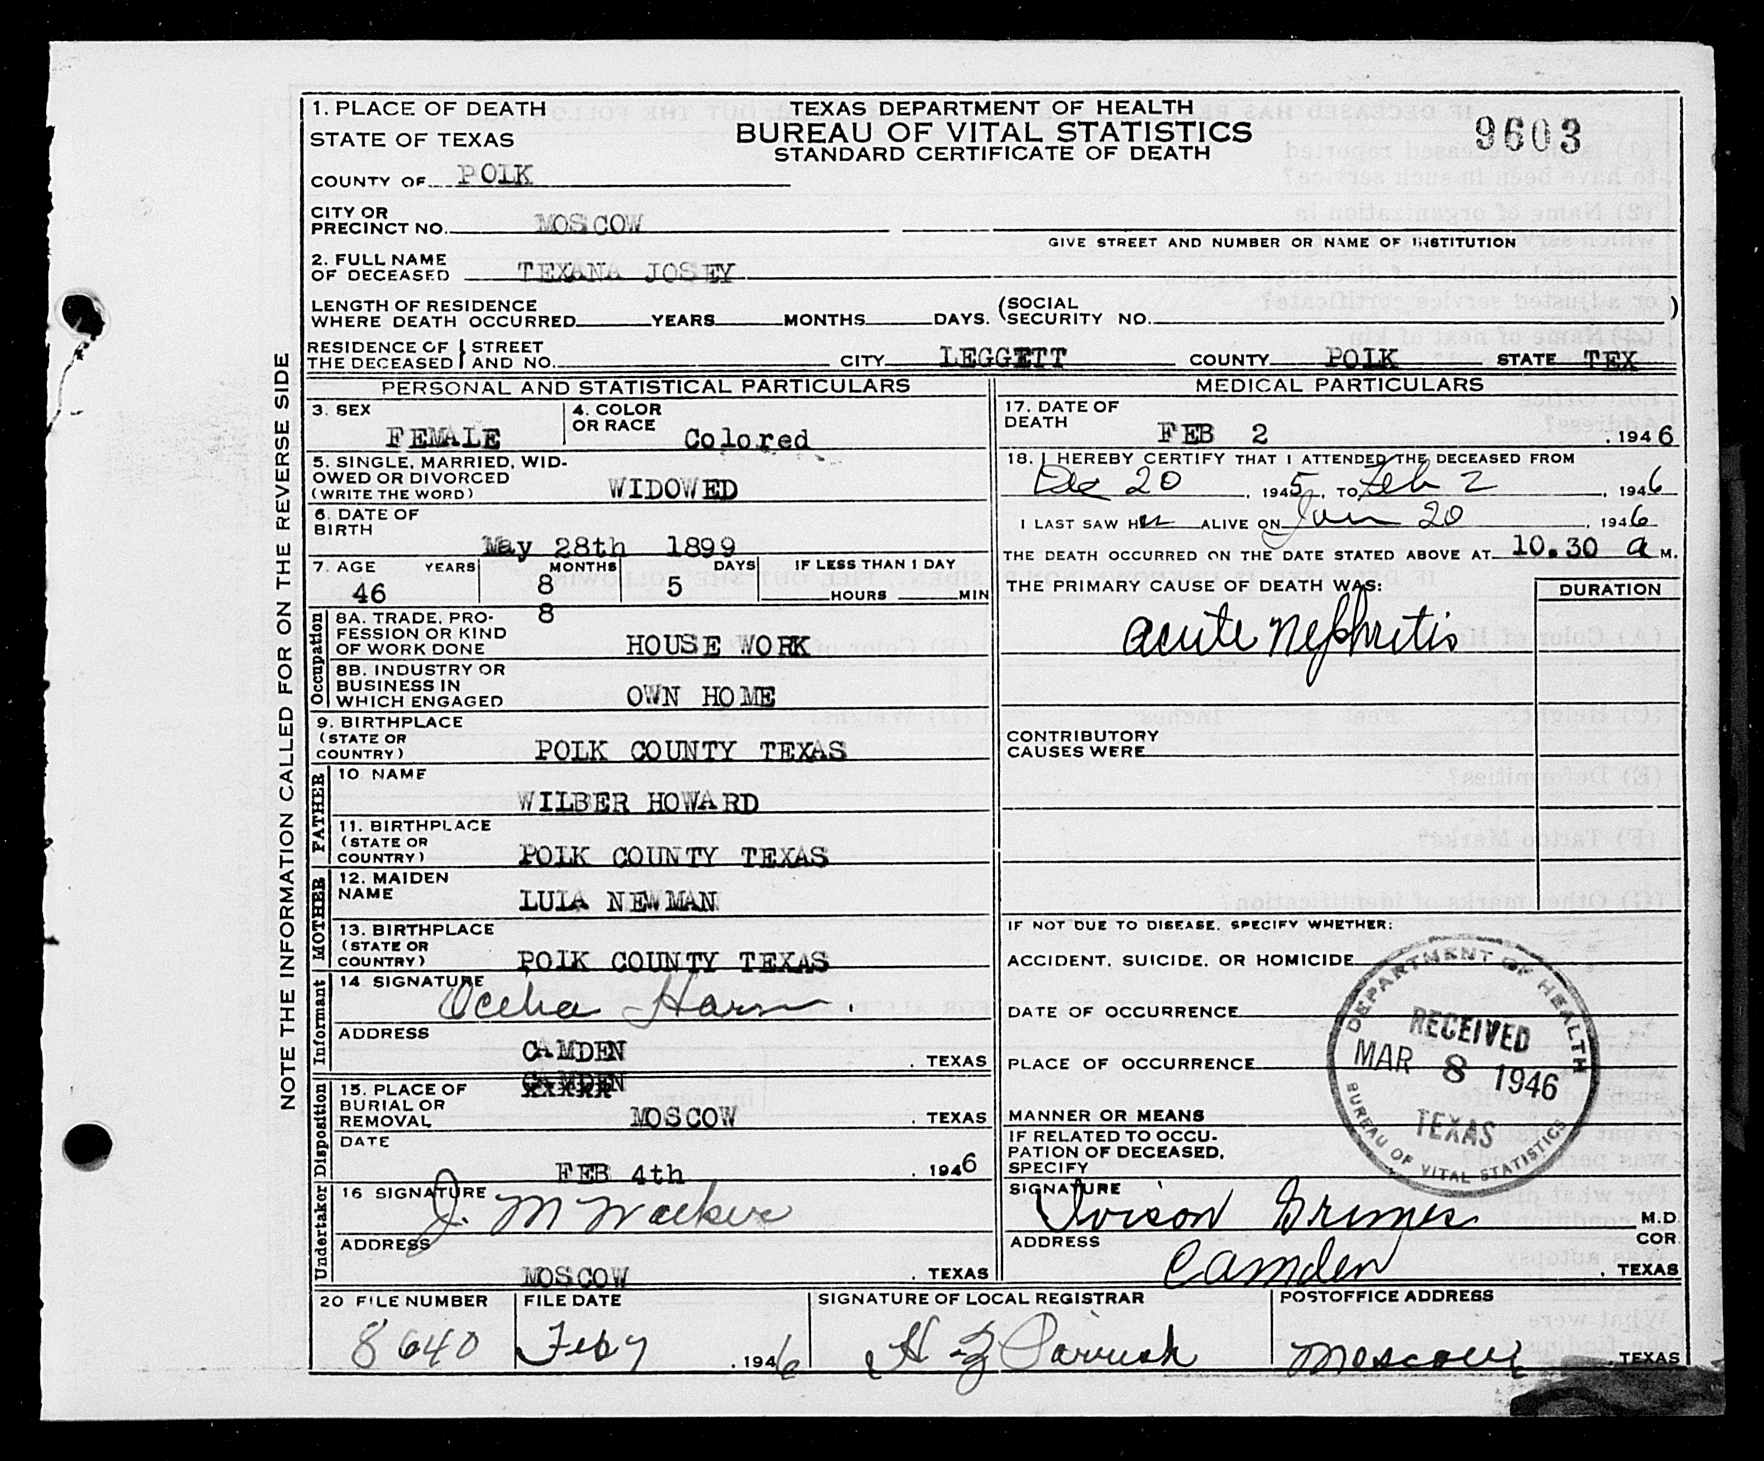 1. PLACE OF DEATH
STATE OF TEXAS
COUNTY OF POLK
TEXAS DEPARTMENT OF HEALTH
BUREAU OF VITAL STATISTICS
STANDARD CERTIFICATE OF DEATH
9603
CITY OR
PRECINCT NO. MOSCOW
GIVE STREET AND NUMBER OR NAME OF INSTITUTION
2. FULL NAME
OF DECEASED TEXANA JOSEY
LENGTH OF RESIDENCE
WHERE DEATH OCCURRED YEARS MONTHS DAYS. (SOCIAL SECURITY NO. )
RESIDENCE OF THE DECEASED } STREET AND NO. CITY LEGGETT COUNTY POLK STATE TEX
PERSONAL AND STATISTICAL PARTICULARS
3. SEX
FEMALE
4. COLOR
OR RACE
Colored
5. SINGLE, MARRIED, WID-
OWED OR DIVORCED
(WRITE THE WORD) WIDOWED
6. DATE OF
BIRTH
May 28th 1899
7. AGE YEARS MONTHS DAYS IF LESS THAN 1 DAY
46 8 5 HOURS MIN
8
8A. TRADE, PRO-
FESSION OR KIND
OF WORK DONE HOUSE WORK
8B. INDUSTRY OR
BUSINESS IN
WHICH ENGAGED OWN HOME
Occupation
9. BIRTHPLACE
(STATE OR
COUNTRY) POLK COUNTY TEXAS
FATHER
10 NAME
WILBER HOWARD
11. BIRTHPLACE
(STATE OR
COUNTRY) POLK COUNTY TEXAS
MOTHER
12. MAIDEN
NAME LULA NEWMAN
13. BIRTHPLACE
(STATE OR
COUNTRY) POLK COUNTY TEXAS
Informant
14 SIGNATURE
ADDRESS
CAMDEN . TEXAS
Disposition
CAMDEN
15. PLACE OF
BURIAL OR
REMOVAL MOSCOW . TEXAS
DATE
FEB 4th . 1946
Undertaker
16 SIGNATURE
J. M Walker
ADDRESS
MOSCOW . TEXAS
MEDICAL PARTICULARS
17. DATE OF
DEATH FEB 2 . 1946
18. I HEREBY CERTIFY THAT I ATTENDED THE DECEASED FROM
Dec 20 , 1945, TO Feb 2 , 1946
I LAST SAW Her ALIVE ON Jan 20 , 1946
THE DEATH OCCURRED ON THE DATE STATED ABOVE AT 10.30 a M.
THE PRIMARY CAUSE OF DEATH WAS: DURATION
acute nephritis
CONTRIBUTORY
CAUSES WERE
IF NOT DUE TO DISEASE, SPECIFY WHETHER:
ACCIDENT, SUICIDE, OR HOMICIDE
DATE OF OCCURRENCE
PLACE OF OCCURRENCE
MANNER OR MEANS
IF RELATED TO OCCU-
PATION OF DECEASED,
SPECIFY
DEPARTMENT OF HEALTH
RECEIVED
MAR 8 1946
TEXAS
BUREAU OF VITAL STATISTICS
SIGNATURE
Ivison Grimes M.D.
COR
ADDRESS
Camden . TEXAS
20 FILE NUMBER
8640
FILE DATE
Feb 7 . 1946
SIGNATURE OF LOCAL REGISTRAR
Parrish
POSTOFFICE ADDRESS
Moscow . TEXAS
NOTE THE INFORMATION CALLED FOR ON THE REVERSE SIDE